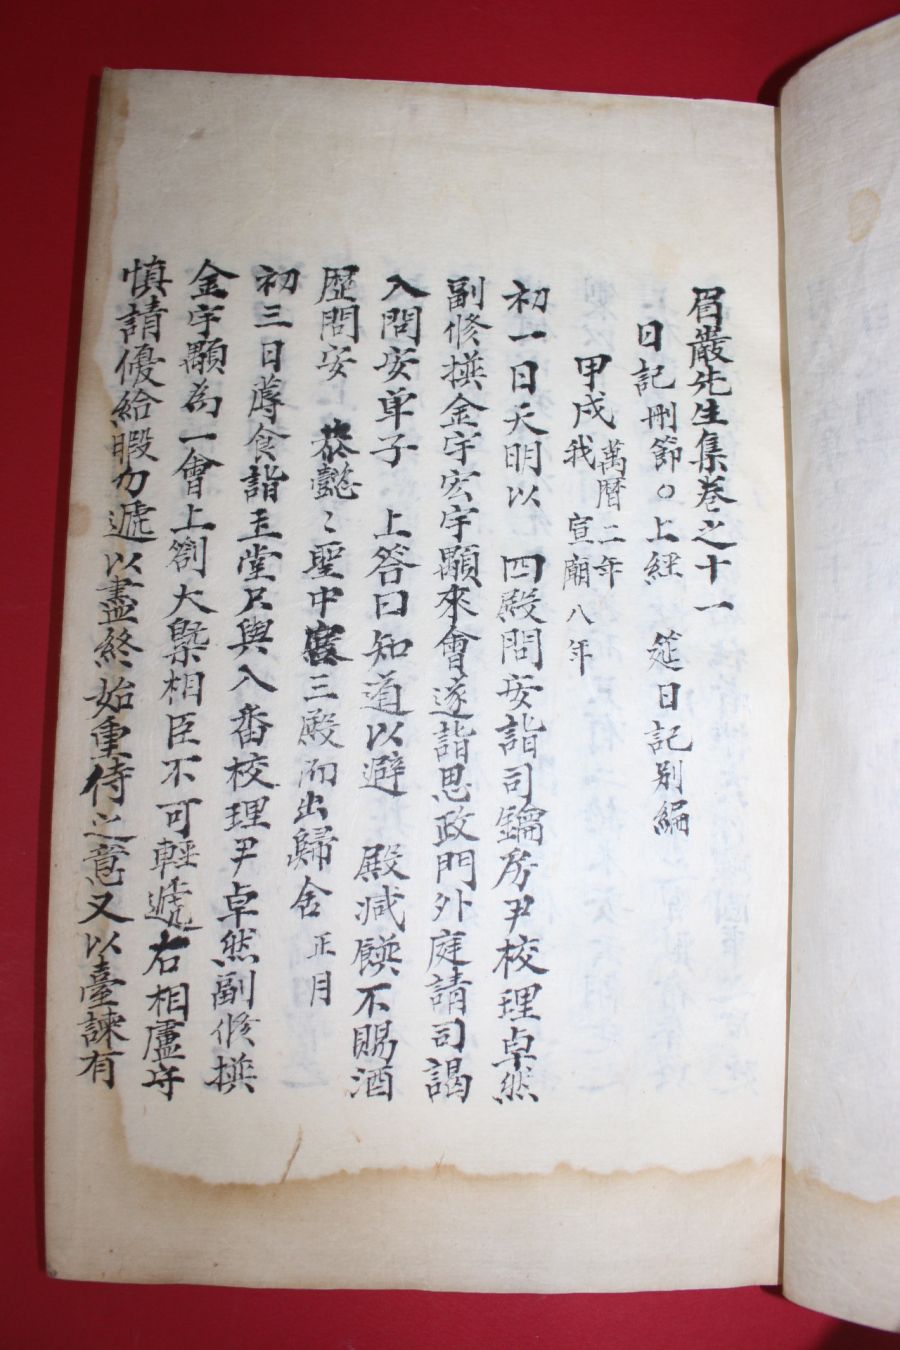 眉巖先生集卷之十一
日記刪節○上經 筵日記別編
甲戌 萬曆二年 我 宣廟八年
初一日天明以 四殿問安詣司鑰房尹校理卓然
副修撰金宇宏宇顒來會遂詣思政門外庭請司謁
入問安单子 上答曰知道以避 殿减饌不賜酒
歷問安 恭懿〻聖中宫三殿而出歸舍 正月
初三日蓐食詣玉堂只與入番校理尹卓然副修撰
金宇顒為一會上劄大槩相臣不可輕遞右相盧守
慎請優給暇勿遞以盡終始重待之意又以臺諫有